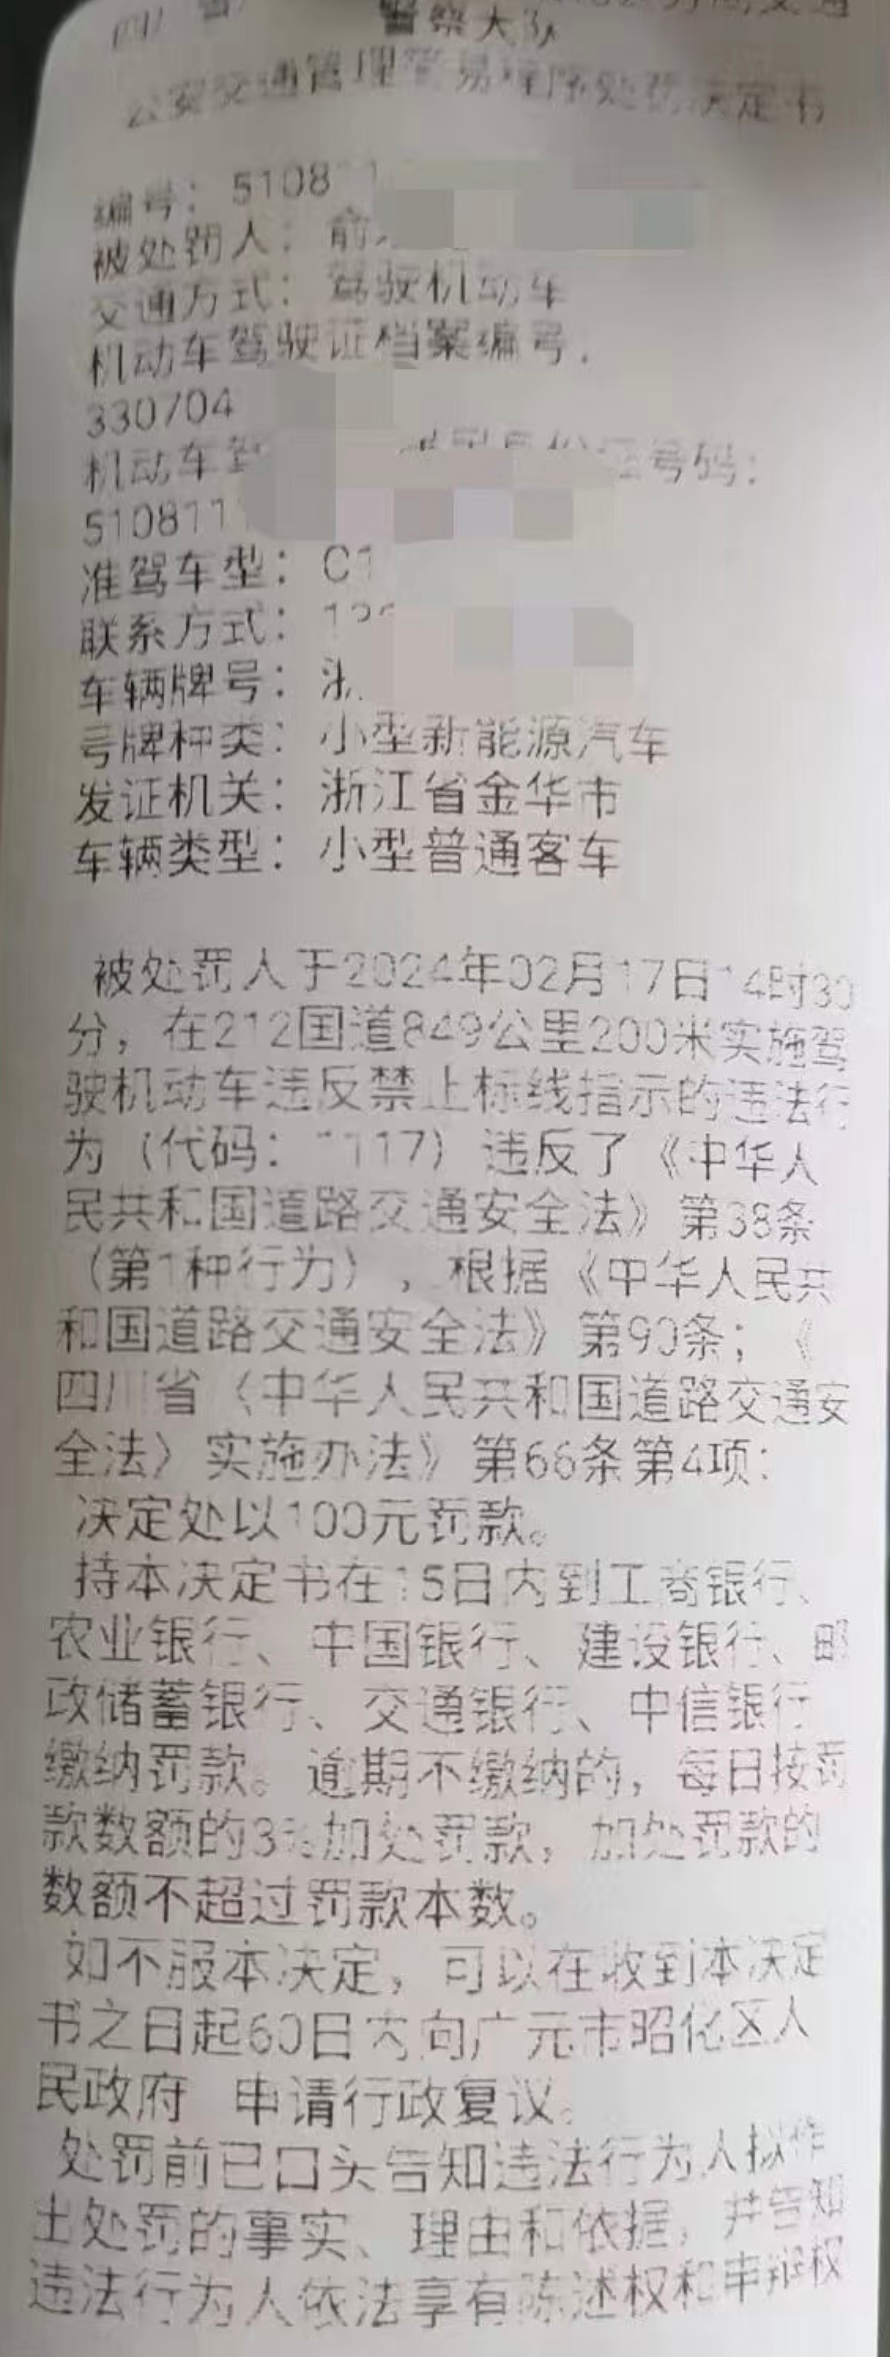 警察大队
公安交通管理简易程序处罚决定书
编号：510811
被处罚人：前
交通方式：驾驶机动车
机动车驾驶证档案编号：
330704
机动车驾 号码：
510811
准驾车型：C1
联系方式：
车辆牌号：浙
号牌种类：小型新能源汽车
发证机关：浙江省金华市
车辆类型：小型普通客车
被处罚人于2024年02月17日14时30
分，在212国道849公里200米实施驾
驶机动车违反禁止标线指示的违法行
为（代码：1117）违反了《中华人
民共和国道路交通安全法》第38条
（第1种行为），根据《中华人民共
和国道路交通安全法》第90条；《
四川省〈中华人民共和国道路交通安
全法〉实施办法》第66条第4项：
决定处以100元罚款。
持本决定书在15日内到工商银行、
农业银行、中国银行、建设银行、邮
政储蓄银行、交通银行、中信银行
缴纳罚款。逾期不缴纳的，每日按罚
款数额的3%加处罚款，加处罚款的
数额不超过罚款本数。
如不服本决定，可以在收到本决定
书之日起60日内向广元市昭化区人
民政府 申请行政复议。
处罚前已口头告知违法行为人拟作
出处罚的事实、理由和依据，并告知
违法行为人依法享有陈述权和申辩权